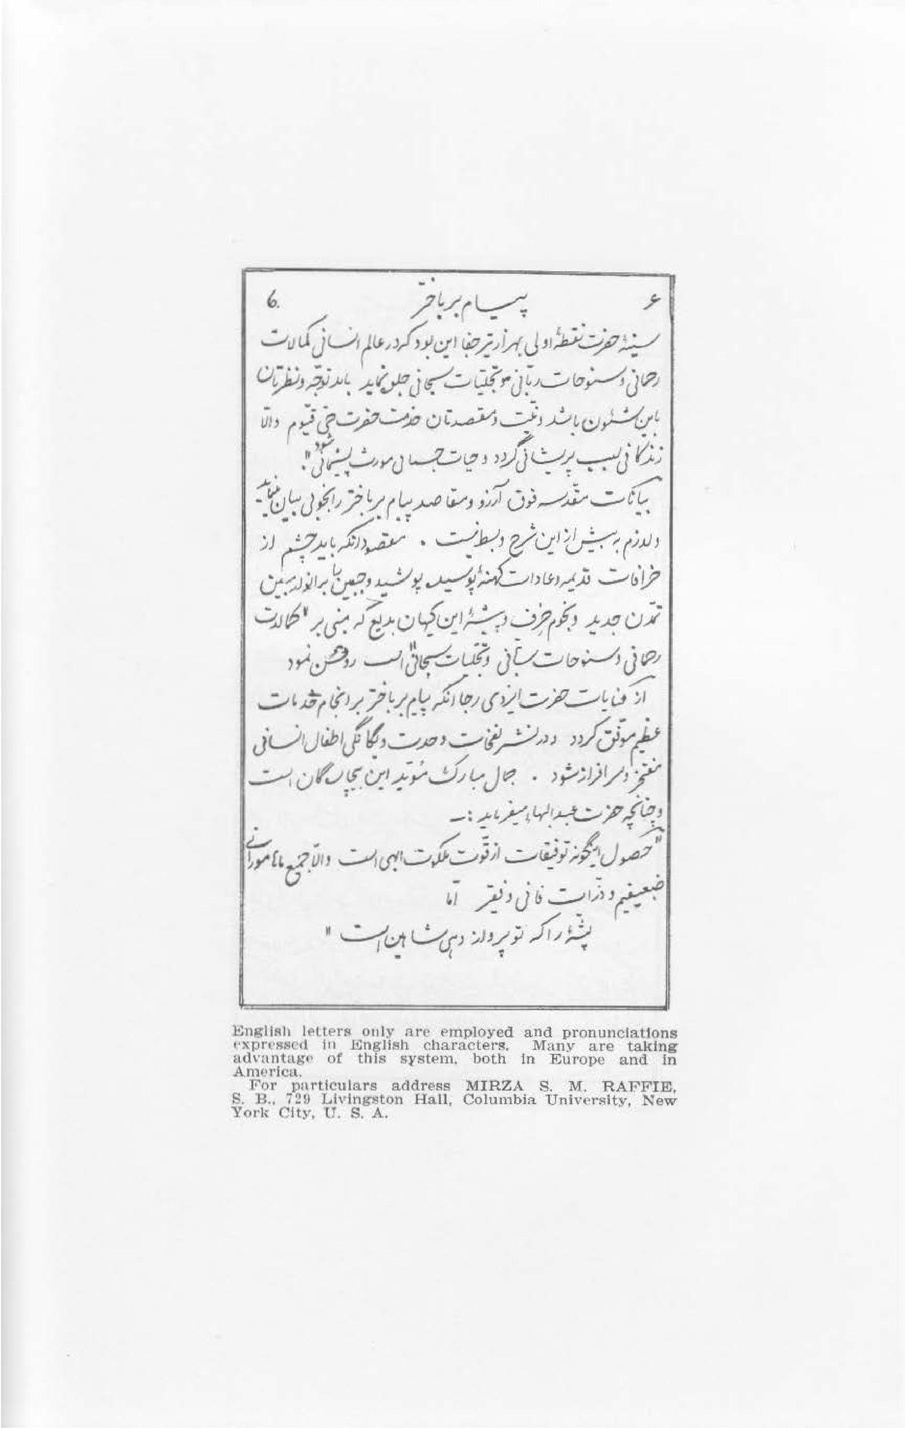 ۶ پیام بر باختر 6.
سینهٔ حضرت نقطهٔ اولی بهزار تیر جفا این بود که در عالم انسانی کمالات
رحمانی و سنوحات ربّانی و تجلیّات سبحانی جلوه نماید باید توجّه و نظرتان
باین شئون باشد و نیّت و مقصدتان خدمت حضرت حیّ قیّوم والّا
زندگانی سبب پریشانی گردد و حیات جسمانی مورث پشیمانی شود".
بیانات مقدّسه فوق آرزو و مقاصد پیام بر باختر را بخوبی بیان مینماید
و لازم به بیش از این شرح و بسط نیست . مقصود آنکه باید چشم از
خرافات قدیمه و عادات کهنهٔ پوسیده پوشید و جبین را بر انوار مبین
تمدّن جدید و نجوم این کیهان بدیع که مبنی بر "کمالات
رحمانی و سنوحات ربّانی و تجلیات سبحانی" است روشن نمود
از عنایات حضرت ایزدی رجا آنکه پیام بر باختر بر انجام خدمات
عظیم موفّق گردد و در نشر نفحات وحدت و یگانگی اطفال انسانی
مفتخر و سرافراز شود . جمال مبارک مؤیّد این بیچارگان است
و چنانچه حضرت عبدالبهاء میفرماید :ـ
"حصول اینگونه توفیقات از قوّت ملکوت الهی است والّا جمیع ماها مورانی
ضعیفیم و ذرّات فانی و فقیر امّا
پشّهٔ را که تو پرواز دهی شاهین است "
English letters only are employed and pronunciations
expressed in English characters. Many are taking
advantage of this system, both in Europe and in
America.
For particulars address MIRZA S. M. RAFFIE,
S. B., 729 Livingston Hall, Columbia University, New
York City, U. S. A.